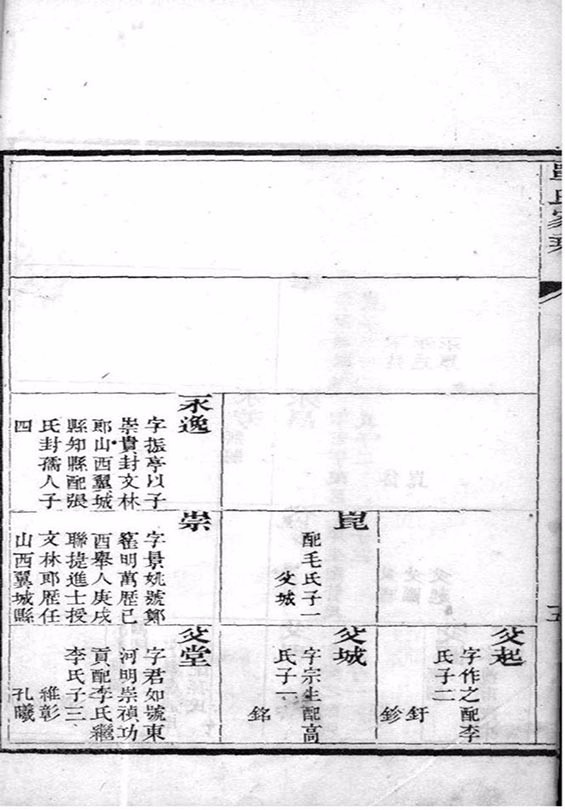 氏家
永逸
字振亭以子
崇貴封文林
郎山西翼城
縣知縣配張
氏封孺人子
四
崑
配毛氏子一
爻城
崇
字景姚號鄭
明萬歷己
酉舉人庚戌
聯捷進士授
文林郎歷任
山西翼城縣
爻起
字作之配李
氏子二
釪
鉁
爻城
字宗生配高
氏子一
銘
爻堂
字君如號東
河明崇禎功
貢配李氏繼
李氏子三
維彰
孔曦